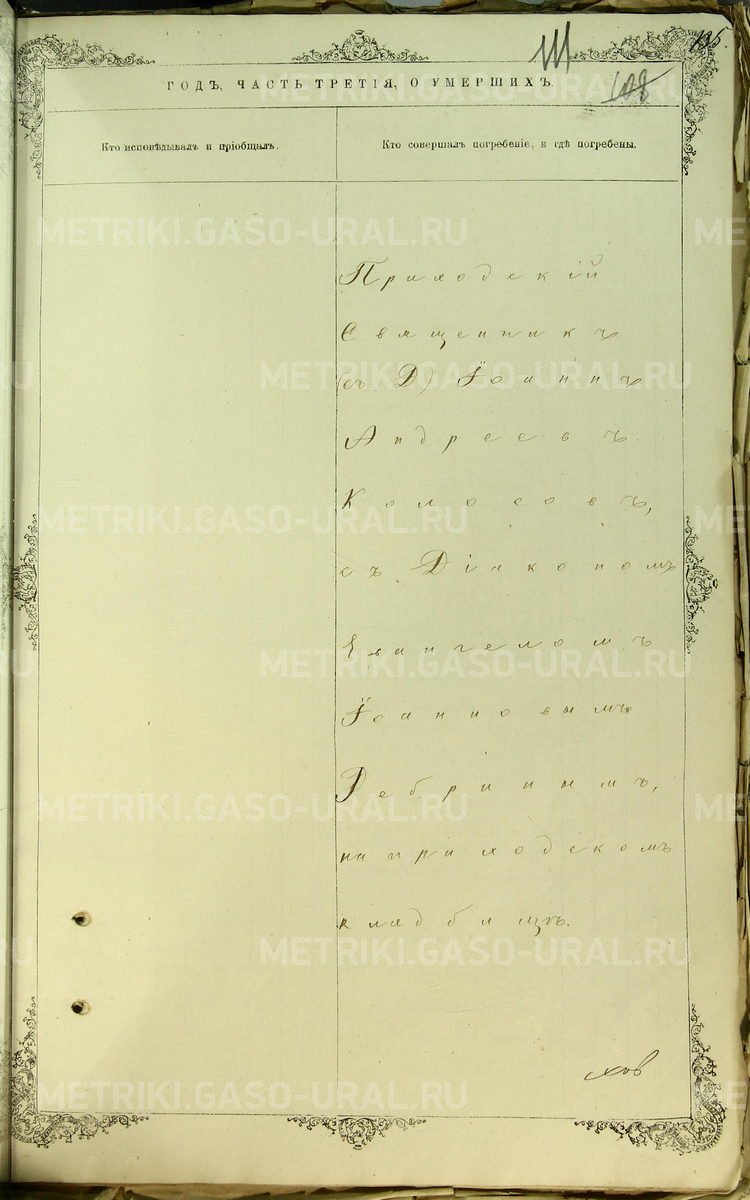 111
108
ГОДЪ, ЧАСТЬ ТРЕТІЯ, О УМЕРШИХЪ.
Кто исповѣдывалъ и пріобщалъ.
Кто совершалъ погребеніе, и гдѣ погребены.
Приходскій
Священникъ
(съ Д) Іоаннъ
Андреевъ
Колосовъ,
съ Діакономъ
Евангеломъ
Іоанновымъ
Ребринымъ,
на приходскомъ
кладбищѣ.
METRIKI.GASO-URAL.RU